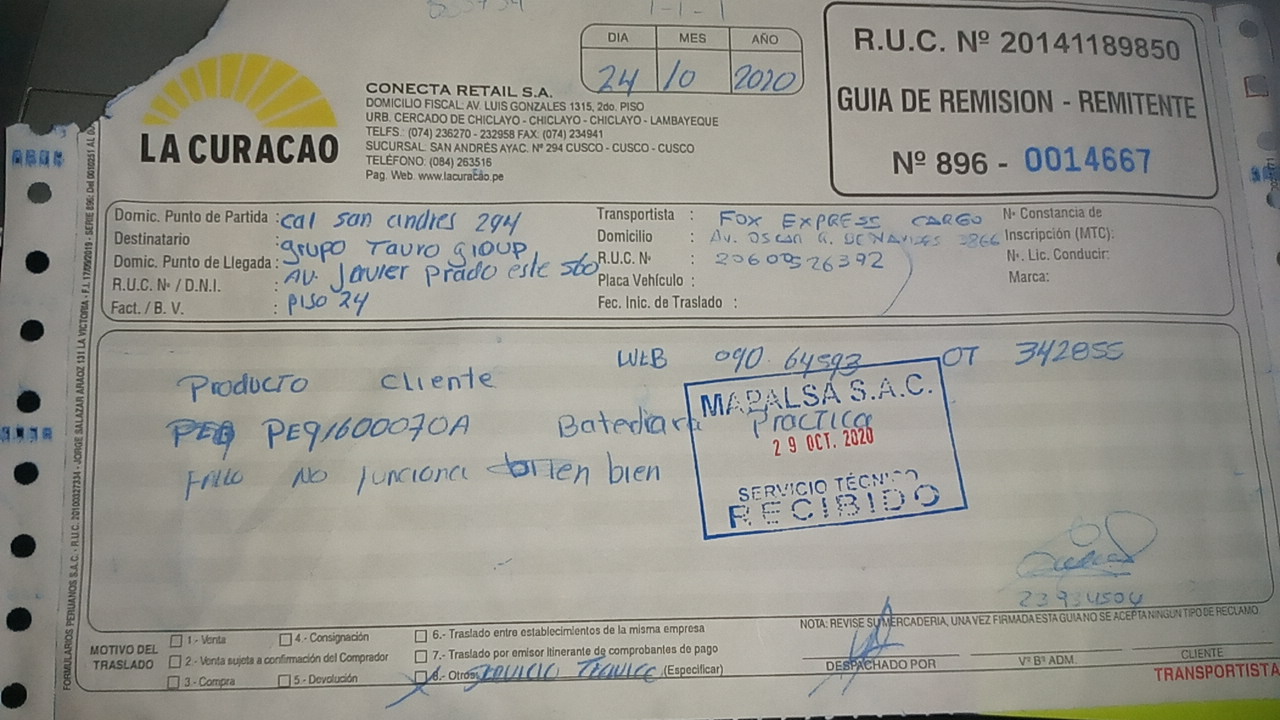 DIA MES AÑO
24 10 2020
R.U.C. Nº 20141189850
GUIA DE REMISION - REMITENTE
Nº 896 - 0014667
LA CURACAO
CONECTA RETAIL S.A.
DOMICILIO FISCAL: AV. LUIS GONZALES 1315, 2do. PISO
URB. CERCADO DE CHICLAYO - CHICLAYO - CHICLAYO - LAMBAYEQUE
TELFS.: (074) 236270 - 232958 FAX: (074) 234941
SUCURSAL: SAN ANDRÉS AYAC. Nº 294 CUSCO - CUSCO - CUSCO
TELÉFONO: (084) 263516
Pag. Web. www.lacuracao.pe
Domic. Punto de Partida : cal san andres 294
Destinatario : grupo Tauro group
Domic. Punto de Llegada : AV. Javier prado este 560
R.U.C. Nº / D.N.I. : piso 24
Fact. / B. V. :
Transportista : FOX EXPRESS CARGO
Domicilio : Av. OSCAR R. BENAVIDES 3866
R.U.C. Nº : 20600526392
Placa Vehículo :
Fec. Inic. de Traslado :
Nº Constancia de
Inscripción (MTC):
Nº. Lic. Conducir:
Marca:
WEB 090-64593 OT 342855
Producto cliente
PE91600070A Batediara Practica
Fallo No funciona bien
MAPALSA S.A.C.
29 OCT. 2020
SERVICIO TÉCNICO
RECIBIDO
23934504
NOTA: REVISE SU MERCADERIA, UNA VEZ FIRMADA ESTA GUIA NO SE ACEPTA NINGUN TIPO DE RECLAMO.
MOTIVO DEL TRASLADO
1.- Venta
2.- Venta sujeta a confirmación del Comprador
3.- Compra
4.- Consignación
5.- Devolución
6.- Traslado entre establecimientos de la misma empresa
7.- Traslado por emisor Itinerante de comprobantes de pago
8.- Otros SERVICIO TECNICO (Especificar)
DESPACHADO POR
Vº Bº ADM.
CLIENTE
TRANSPORTISTA
FORMULARIOS PERUANOS S.A.C. - R.U.C. 20100327334 - JORGE SALAZAR ARAOZ 131 LA VICTORIA - F.I. 17/09/2019 - SERIE 896: Del 0010251 AL